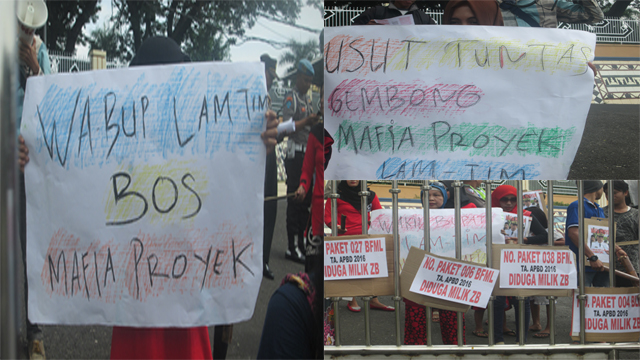 WABUP LAMTIM
BOS
MAFIA PROYEK
USUT TUNTAS
GEMBONG
MAFIA PROYEK
LAM-TIM
WAKIL BUPATI
LAM-TIM
NO. PAKET 027 BFML
TA. APBD 2016
DIDUGA MILIK ZB
NO. PAKET 006 BFML
TA. APBD 2016
DIDUGA MILIK ZB
NO. PAKET 038 BFML
TA. APBD 2016
DIDUGA MILIK ZB
NO. PAKET 004 BFML
TA. APBD 2016
DIDUGA MILIK